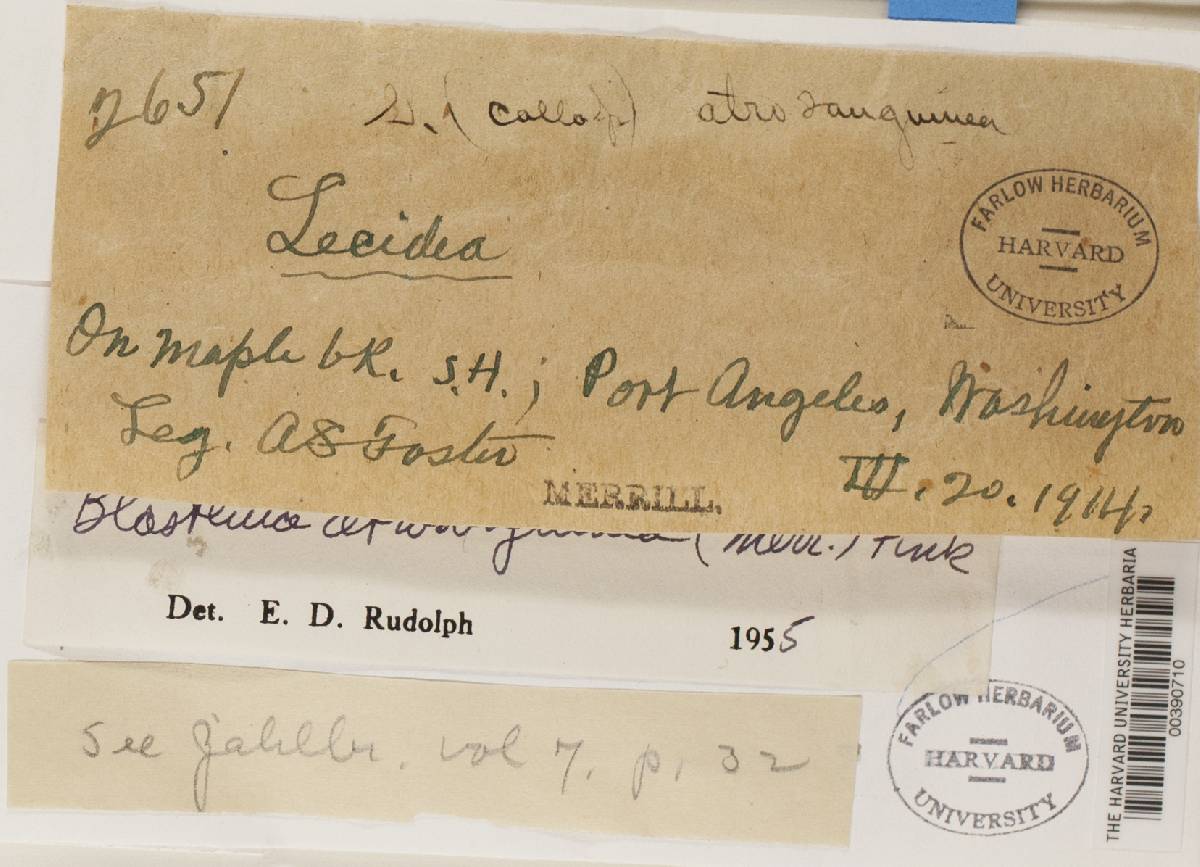 2651 L. (callop) atrosanguinea
Lecidea
FARLOW HERBARIUM
HARVARD
UNIVERSITY
On maple bk. S.H.; Port Angeles, Washington
Leg. AS Foster III. 20. 1914.
MERRILL.
Blastenia atrosanguinea (Merr.) Fink
Det. E. D. Rudolph 1955
See Zahlbr. vol 7, p. 32
FARLOW HERBARIUM
HARVARD
UNIVERSITY
THE HARVARD UNIVERSITY HERBARIA
00390710